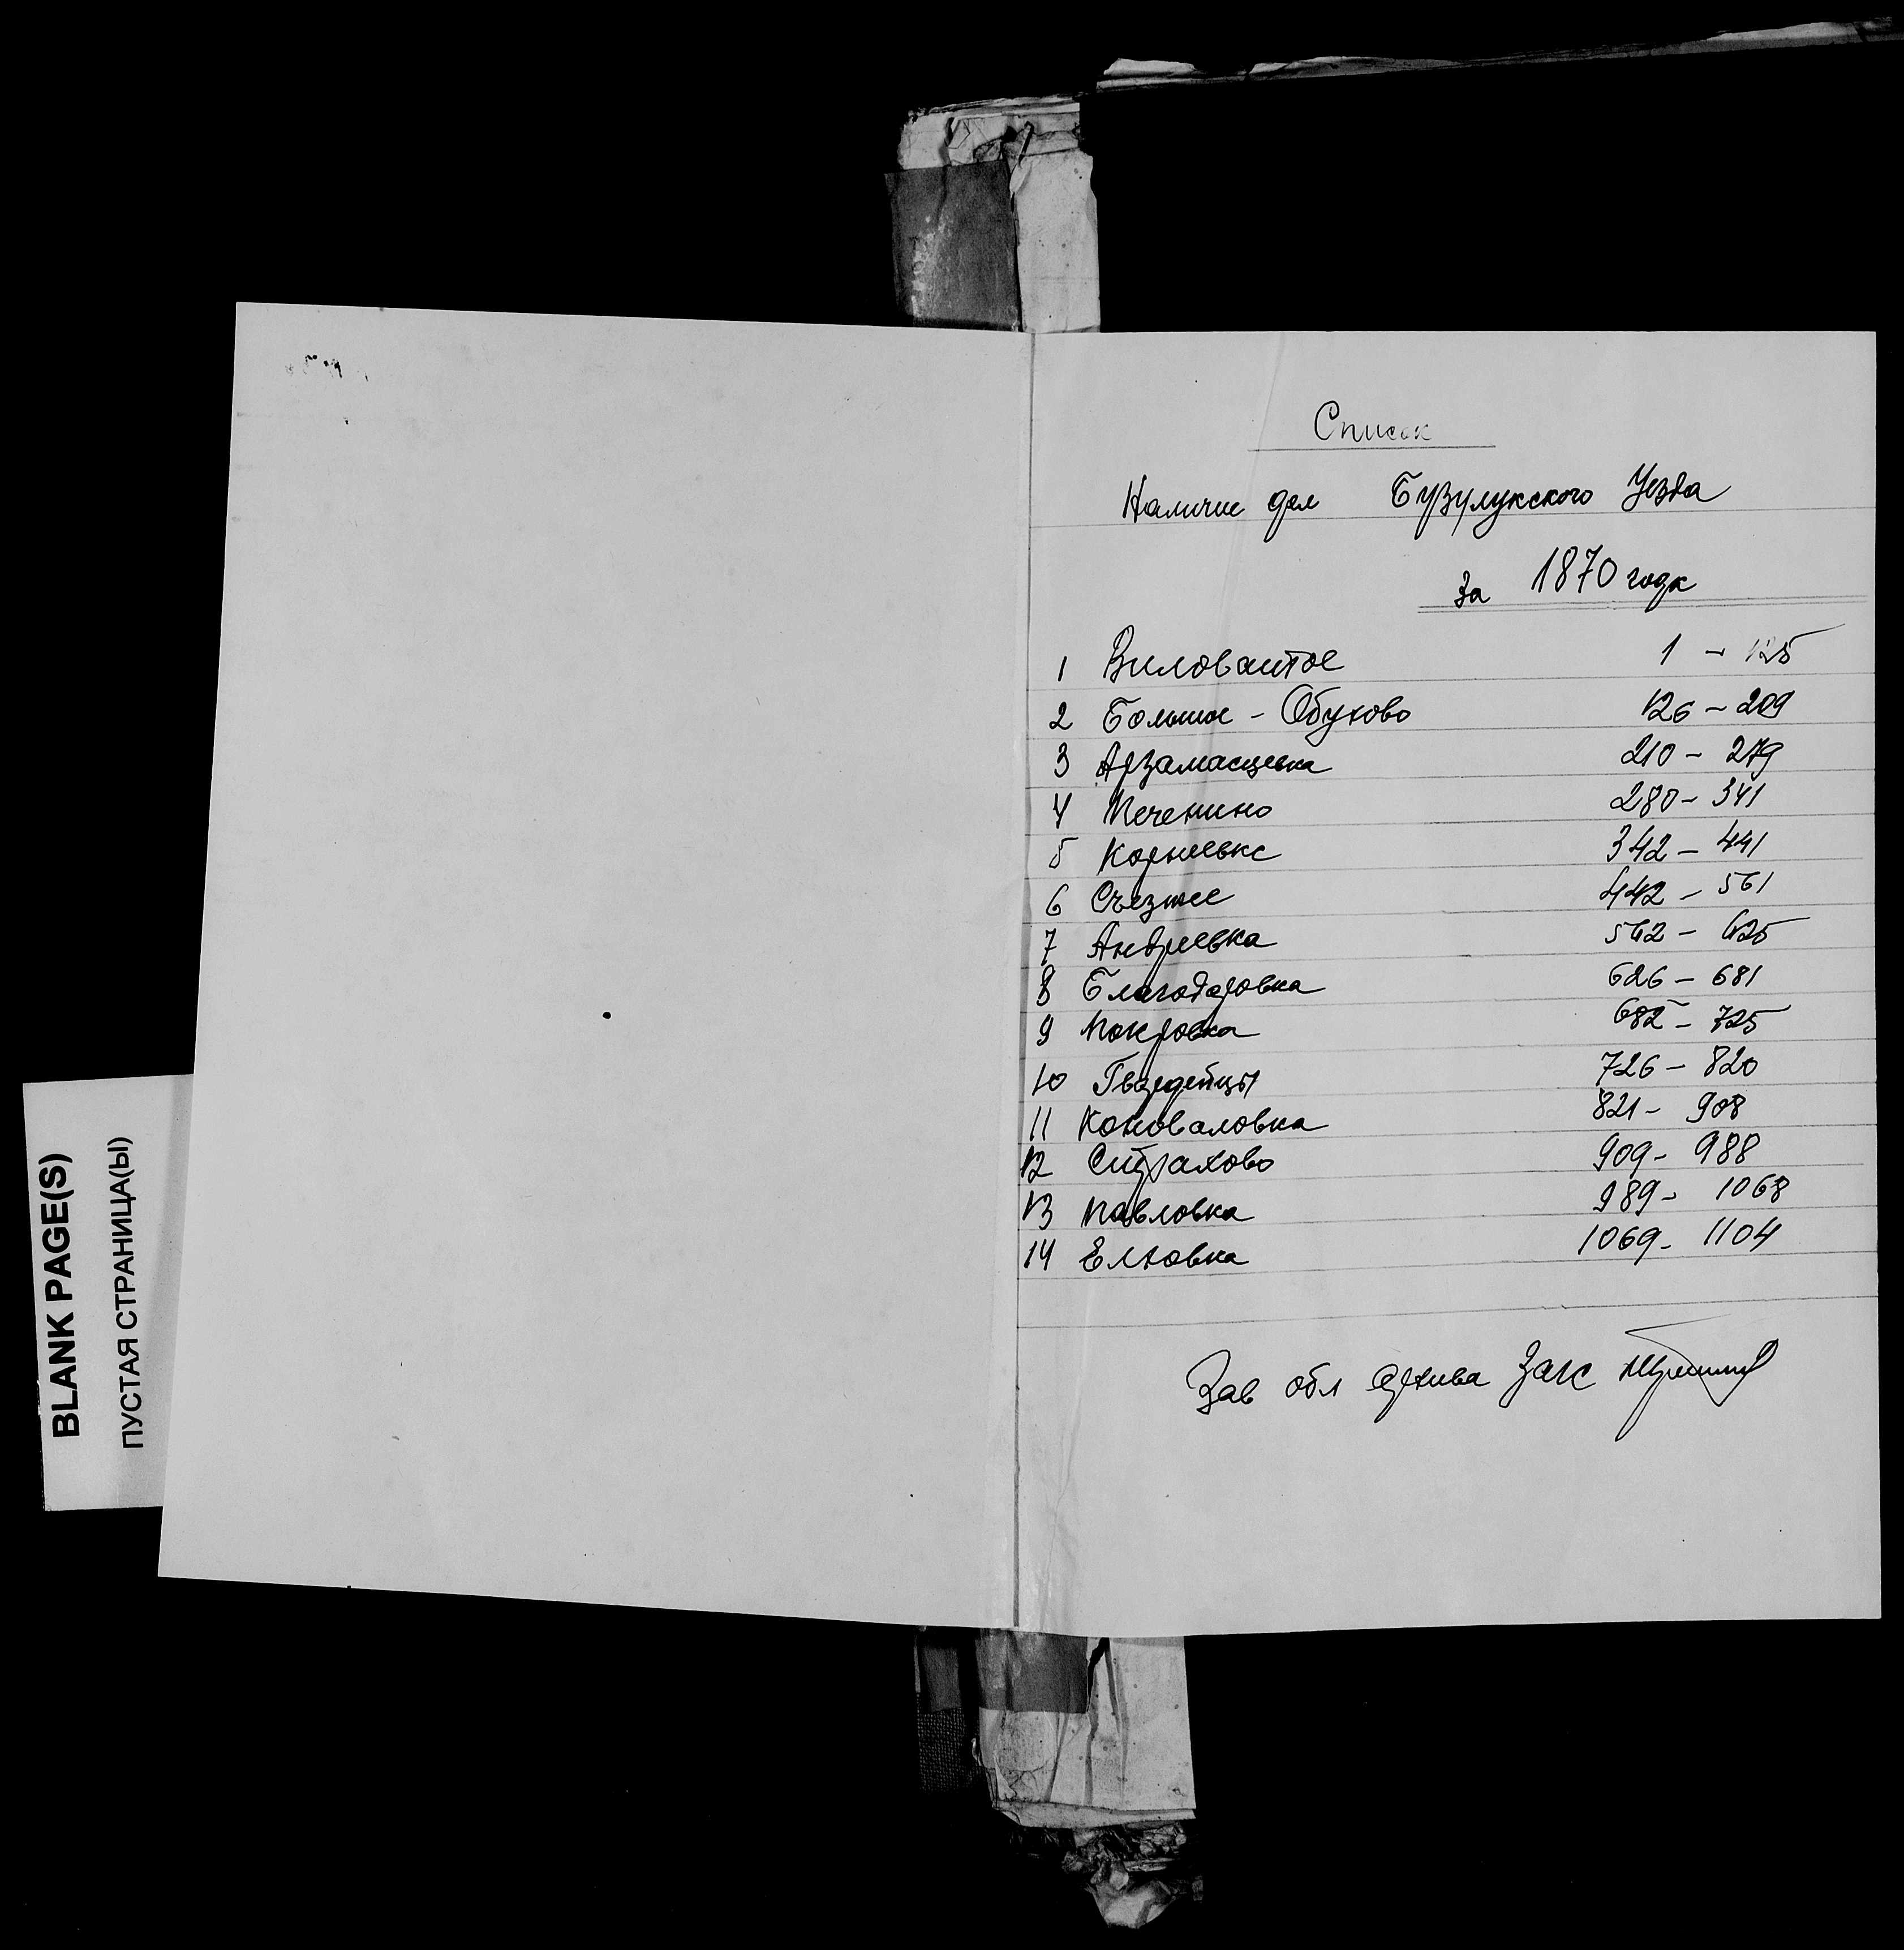 BLANK PAGE(S)
ПУСТАЯ СТРАНИЦА(Ы)
Список
Наличие дел Бузулукского Уезда
за 1870 года
1 Виловатое 1 - 125
2 Больше - Обухово 126 - 209
3 Арзамасцевка 210 - 279
4 Печенино 280 - 341
5 Корнеевка 342 - 441
6 Съезжее 442 - 561
7 Андреевка 562 - 625
8 Благодаровка 626 - 681
9 Покровка 682 - 725
10 Гвардейцы 726 - 820
11 Коноваловка 821 - 908
12 Страхово 909 - 988
13 Павловка 989 - 1068
14 Елховка 1069 - 1104
Зав обл архива Загс